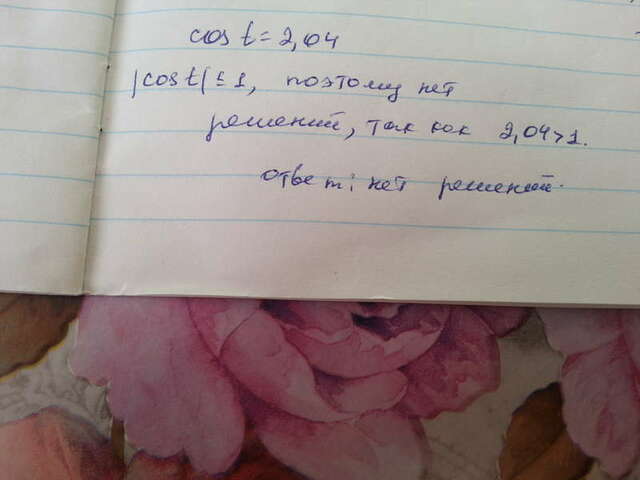 cos t = 2,04
|cos t| ≤ 1, поэтому нет
решений, так как 2,04>1.
ответ: нет решений.